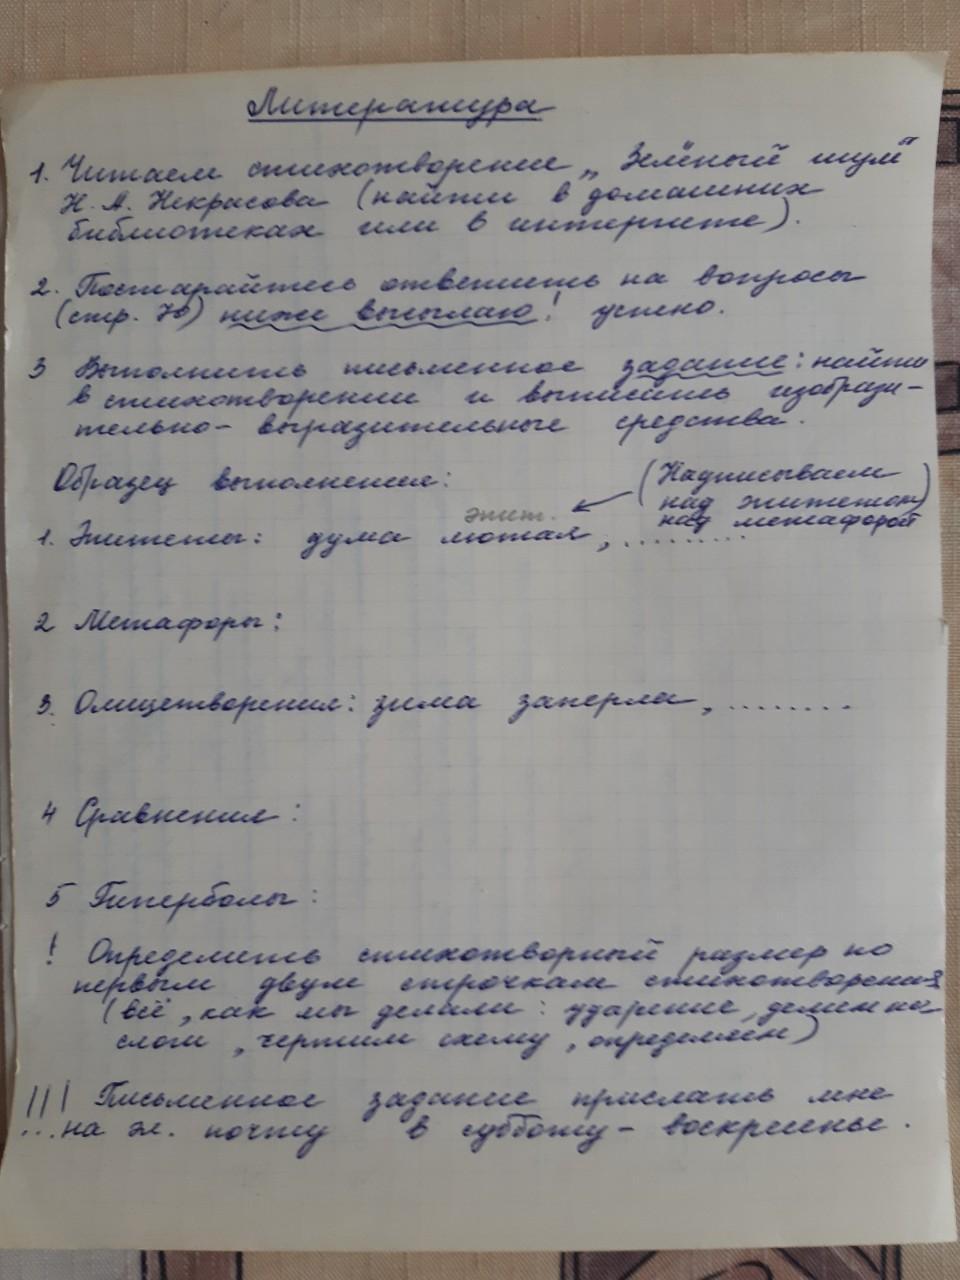 Литература
1. Читаем стихотворение „Зелёный шум"
Н. А. Некрасова (найти в домашних
библиотеках или в интернете).
2. Постарайтесь ответить на вопросы
(стр. 70) ниже высылаю! устно.
3 Выполнить письменное задание: найти
в стихотворении и выписать изобрази-
тельно-выразительные средства.
Образец выполнения:
(Надписываем
над эпитетом)
над метафорой
эпит.
1. Эпитеты: дума лютая, .........
2 Метафоры:
3. Олицетворения: зима заперла, ........
4 Сравнения:
5 Гиперболы:
! Определить стихотворный размер по
первым двум строчкам стихотворения
(всё, как мы делали: ударение, делим на
слоги, чертим схему, определяем)
!!! Письменное задание прислать мне
...на эл. почту в субботу - воскресенье.